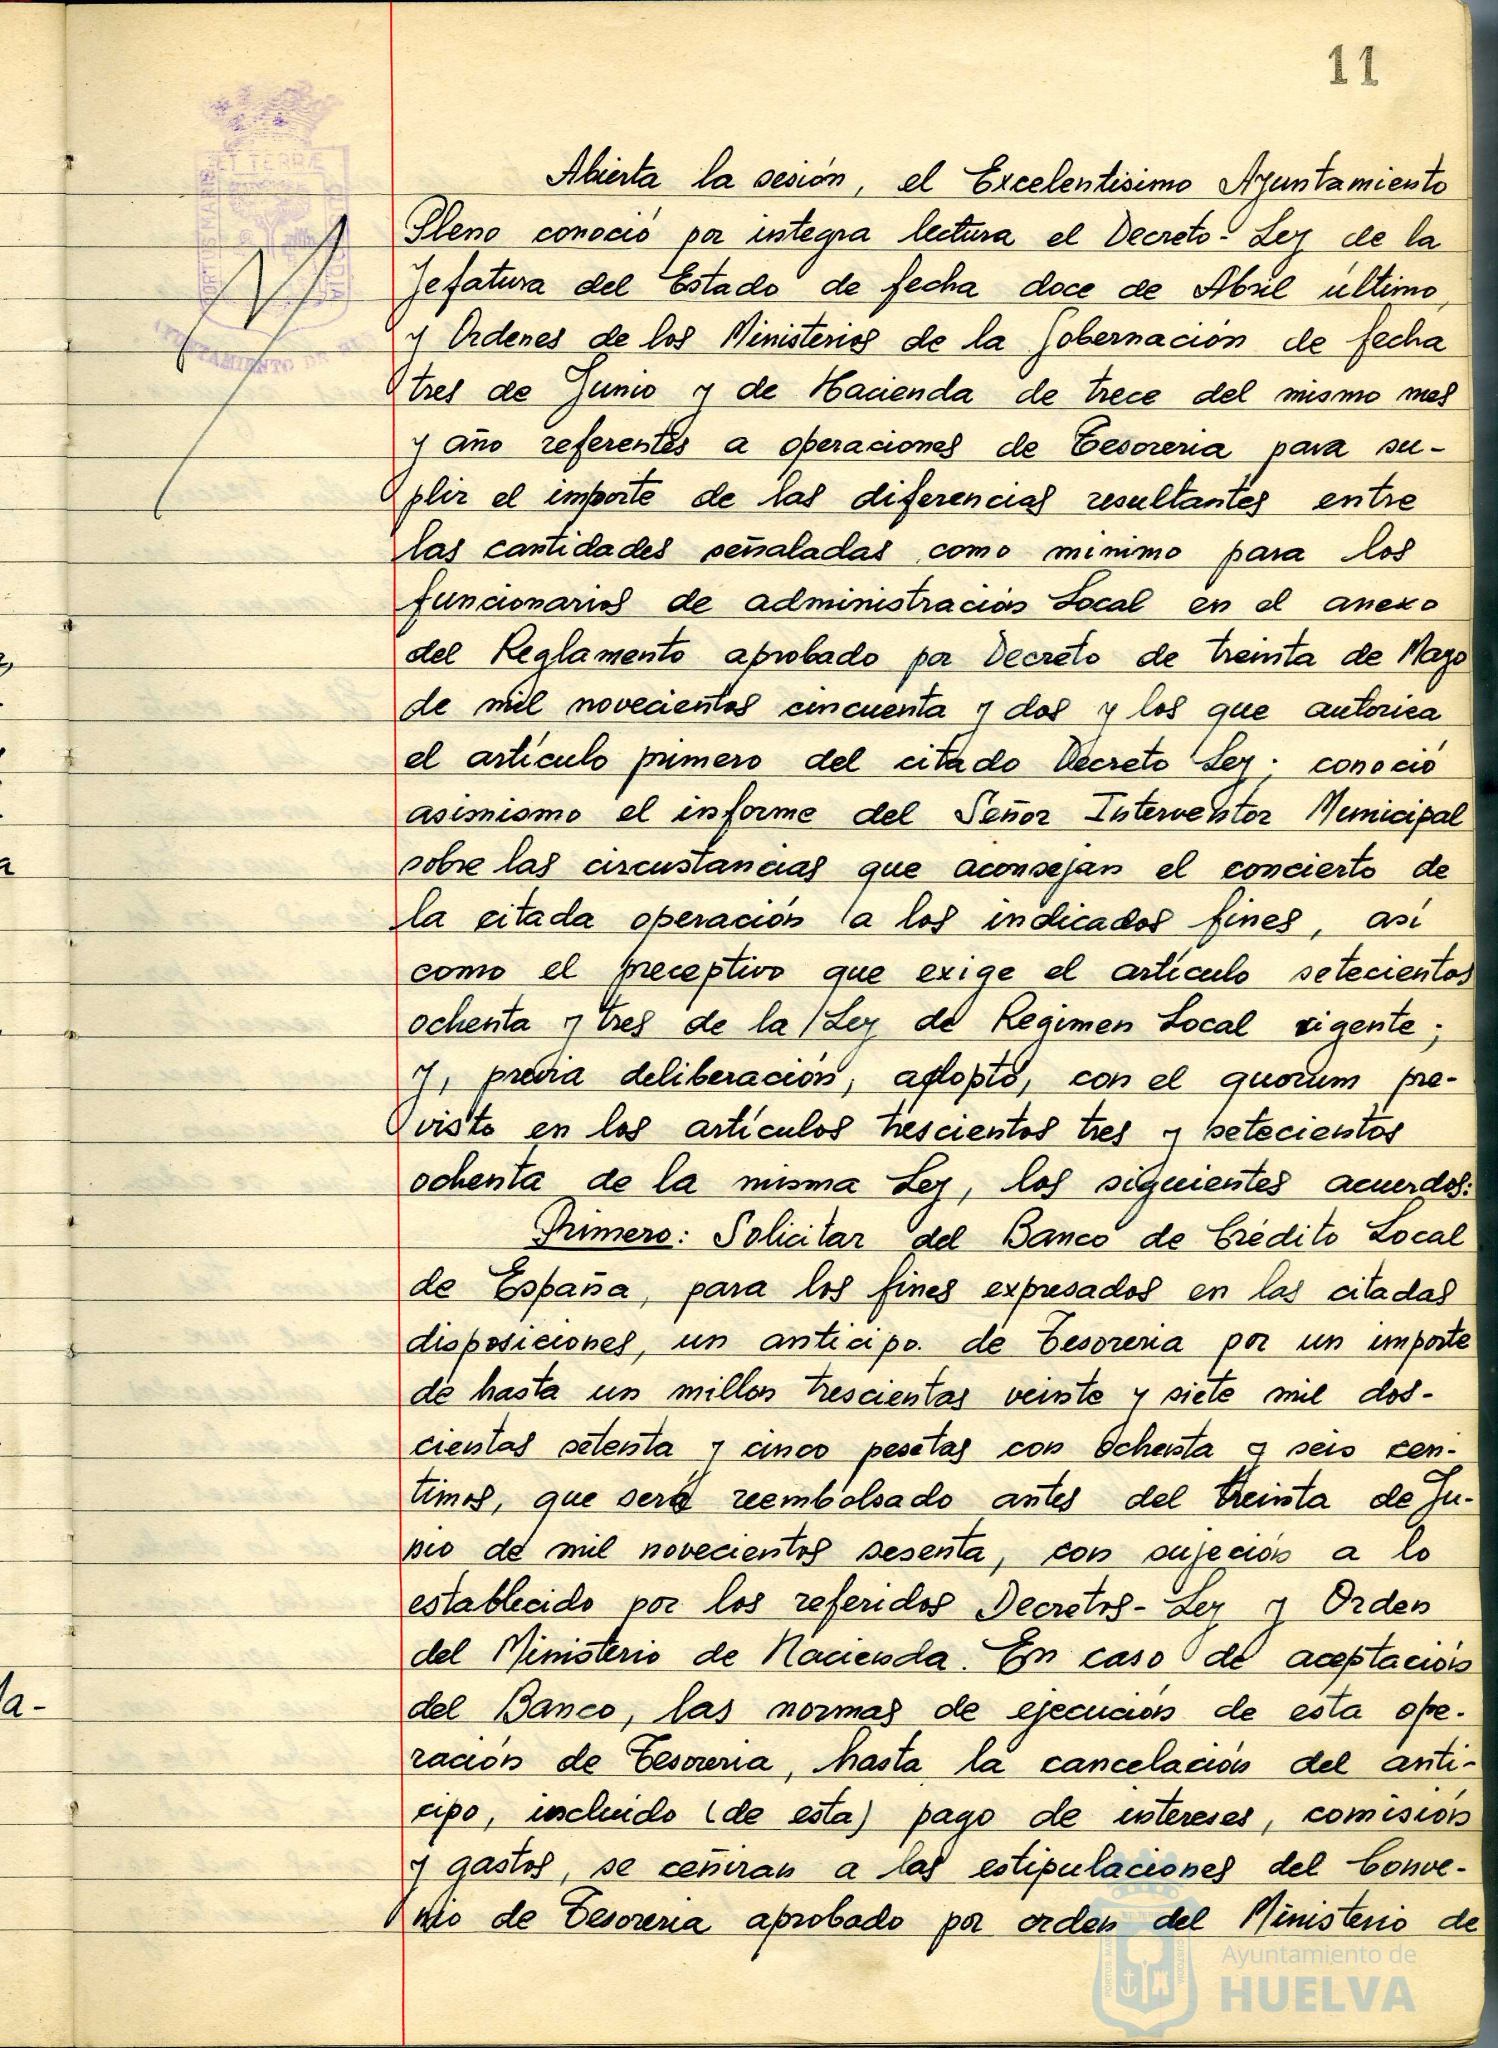 11
ET TERRÆ
PORTUS MARIS
CUSTODIA
AYUNTAMIENTO DE
Abierta la sesión, el Excelentisimo Ayuntamiento
Pleno conoció por integra lectura el Decreto-Ley de la
Jefatura del Estado de fecha doce de Abril último,
y Ordenes de los Ministerios de la Gobernación de fecha
tres de Junio y de Hacienda de trece del mismo mes
y año referentes a operaciones de Tesoreria para su-
plir el importe de las diferencias resultantes entre
las cantidades señaladas como minimo para los
funcionarios de administración Local en el anexo
del Reglamento aprobado por Decreto de treinta de Mayo
de mil novecientos cincuenta y dos y los que autoriza
el artículo primero del citado Decreto Ley; conoció
asimismo el informe del Señor Interventor Municipal
sobre las circustancias que aconsejan el concierto de
la citada operación a los indicados fines, así
como el preceptivo que exige el artículo setecientos
ochenta y tres de la Ley de Regimen Local vigente;
y, previa deliberación, adoptó, con el quorum pre-
visto en los artículos trescientos tres y setecientos
ochenta de la misma Ley, los siguientes acuerdos:
Primero: Solicitar del Banco de Crédito Local
de España, para los fines expresados en las citadas
disposiciones, un anticipo de Tesoreria por un importe
de hasta un millon trescientas veinte y siete mil dos-
cientas setenta y cinco pesetas con ochenta y seis cen-
timos, que será reembolsado antes del treinta de Ju-
nio de mil novecientos sesenta, con sujeción a lo
establecido por los referidos Decretos-Ley y Orden
del Ministerio de Hacienda. En caso de aceptación
del Banco, las normas de ejecución de esta ope-
ración de Tesoreria, hasta la cancelación del anti-
cipo, incluído (de esta) pago de intereses, comisión
y gastos, se ceñiran a las estipulaciones del Conve-
nio de Tesoreria aprobado por orden del Ministerio de
a
la-
Ayuntamiento de
HUELVA